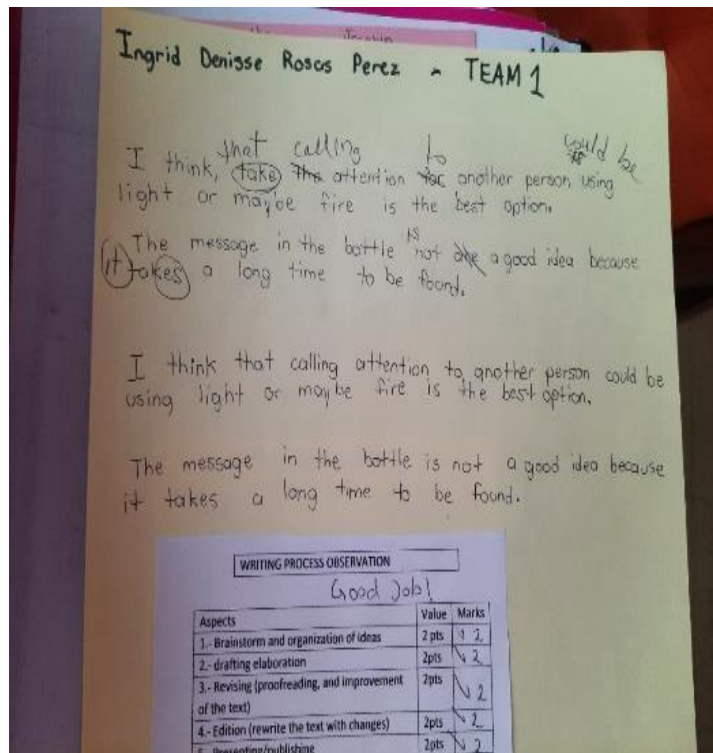 Ingrid Denisse Rosas Perez - TEAM 1
that calling to could be
I think, take the attention for another person using
light or maybe fire is the best option.
is
The message in the bottle not one a good idea because
it takes a long time to be found.
I think that calling attention to another person could be
using light or maybe fire is the best option.
The message in the bottle is not a good idea because
it takes a long time to be found.
WRITING PROCESS OBSERVATION
Good Job!
Aspects Value Marks
1.- Brainstorm and organization of ideas 2 pts 2
2.- drafting elaboration 2pts 2
3.- Revising (proofreading, and improvement 2pts 2
of the text)
4.- Edition (rewrite the text with changes) 2pts 2
5.- Presenting/publishing 2pts 2